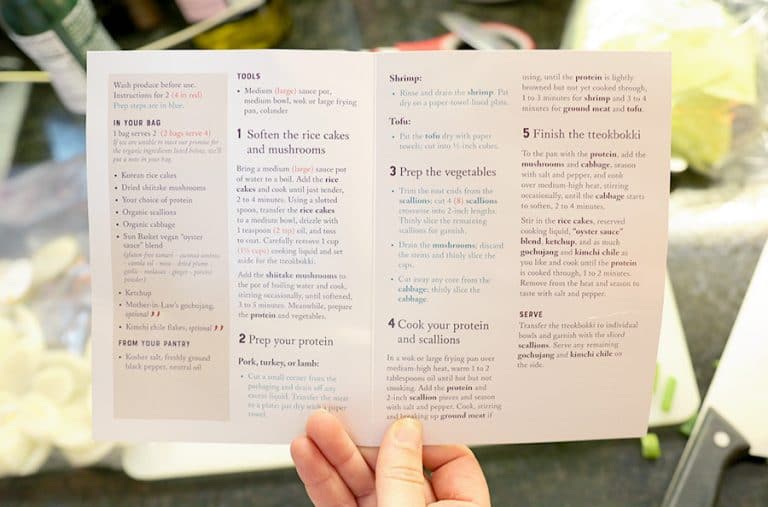 Wash produce before use.
Instructions for 2 (4 in red)
Prep steps are in blue.
IN YOUR BAG
1 bag serves 2 (2 bags serve 4)
If we are unable to meet our promise for
the organic ingredients listed below, we'll
put a note in your bag.
• Korean rice cakes
• Dried shiitake mushrooms
• Your choice of protein
• Organic scallions
• Organic cabbage
• Sun Basket vegan "oyster
sauce" blend
(gluten-free tamari - coconut aminos
- vanilla oil - miso - dried plum -
garlic - molasses - ginger -
powder)
• Ketchup
• Mother-in-Law's gochujang,
optional
• Kimchi chile flakes, optional
FROM YOUR PANTRY
• Kosher salt, freshly ground
black pepper, neutral oil
TOOLS
• Medium (large) sauce pot,
medium bowl, wok or large frying
pan, colander
1 Soften the rice cakes
and mushrooms
Bring a medium (large) sauce pot
of water to a boil. Add the rice
cakes and cook until just tender,
2 to 4 minutes. Using a slotted
spoon, transfer the rice cakes
to a medium bowl, drizzle with
1 teaspoon (2 tsp) oil, and toss
to coat. Carefully remove 1 cup
(1½ cups) cooking liquid and set
aside for the tteokbokki.
Add the shiitake mushrooms to
the pot of boiling water and cook,
stirring occasionally, until softened,
3 to 5 minutes. Meanwhile, prepare
the protein and vegetables.
2 Prep your protein
Pork, turkey, or lamb:
• Cut a small corner from the
packaging and drain off any
excess liquid. Transfer the meat
to a plate; pat dry with a paper
towel.
Shrimp:
• Rinse and drain the shrimp. Pat
dry on a paper-towel-lined plate.
Tofu:
• Pat the tofu dry with paper
towels; cut into ½-inch cubes.
3 Prep the vegetables
• Trim the root ends from the
scallions; cut 4 (8) scallions
crosswise into 2-inch lengths.
Thinly slice the remaining
scallions for garnish.
• Drain the mushrooms; discard
the stems and thinly slice the
caps.
• Cut away any core from the
cabbage; thinly slice the
cabbage.
4 Cook your protein
and scallions
In a wok or large frying pan over
medium-high heat, warm 1 to 2
tablespoons oil until hot but not
smoking. Add the protein and
2-inch scallion pieces and season
with salt and pepper. Cook, stirring
and breaking up ground meat if
using, until the protein is lightly
browned but not yet cooked through,
1 to 3 minutes for shrimp and 3 to 4
minutes for ground meat and tofu.
5 Finish the tteokbokki
To the pan with the protein, add the
mushrooms and cabbage, season
with salt and pepper, and cook
over medium-high heat, stirring
occasionally, until the cabbage starts
to soften, 2 to 4 minutes.
Stir in the rice cakes, reserved
cooking liquid, "oyster sauce"
blend, ketchup, and as much
gochujang and kimchi chile as
you like and cook until the protein
is cooked through, 1 to 2 minutes.
Remove from the heat and season to
taste with salt and pepper.
SERVE
Transfer the tteokbokki to individual
bowls and garnish with the sliced
scallions. Serve any remaining
gochujang and kimchi chile on
the side.